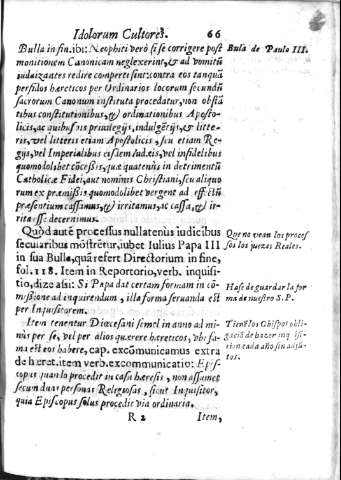 Idolorum Cultores. 66
Bulla in fin. ibi: Neophiti verò si se corrigere post
monitionem Canonicam neglexerint, & ad vomitũ
iudaizantes redire comperti sint: contra eos tanquã
persidos hæreticos per Ordinarios locorum secundũ
sacrorum Canonum instituta procedatur, non obstã
tibus constitutionibus, & ordinationibus Aposto-
licis, ac quibusuis priuilegijs, indulgẽtijs, & litte-
ris, vel litteris etiam Apostolicis, seu etiam Re-
gijs, vel Imperialibus eisdem Iudæis, vel infidelibus
quomodolibet cõcessis, quæ quatenùs in detrimentũ
Catholicæ Fidei, aut nominis Christiani, seu aliquo
rum ex præmissis quomodolibet vergent ad effectũ
præsentium cassamus, & irritamus, ac cassa, & ir-
rita esse decernimus.
Quòd autẽ processus nullatenùs iudicibus
secularibus mõstretur, iubet Iulius Papa III
in sua Bulla, quã refert Directorium in fine,
fol. 118. Item in Reportorio, verb. inquisi-
tio, dize asi: Si Papa dat certam formam in cõ-
missione ad inquirendum, illa forma seruanda est
per Inquisitorem.
Item tenentur Diœcesani semel in anno ad mi-
nùs per se, vel per alios quærere hæreticos, vbi fa-
ma est eos habere, cap. excõmunicamus extra
de hæret. item verb. excommunicatio: Epis-
copus quando procedit in casu hæresis, non assumet
secum duas personas Religiosas, sicut Inquisitor,
quia Episcopus solus procedit via ordinaria.
R 2 Item,
Bula de Paulo III.
Que no vean los proces
sos los juezes Reales.
Hase de guardar la for
ma de nuestro S. P.
Tienẽ los Obispos obli-
gaciõ de hazer inquisi-
tos.